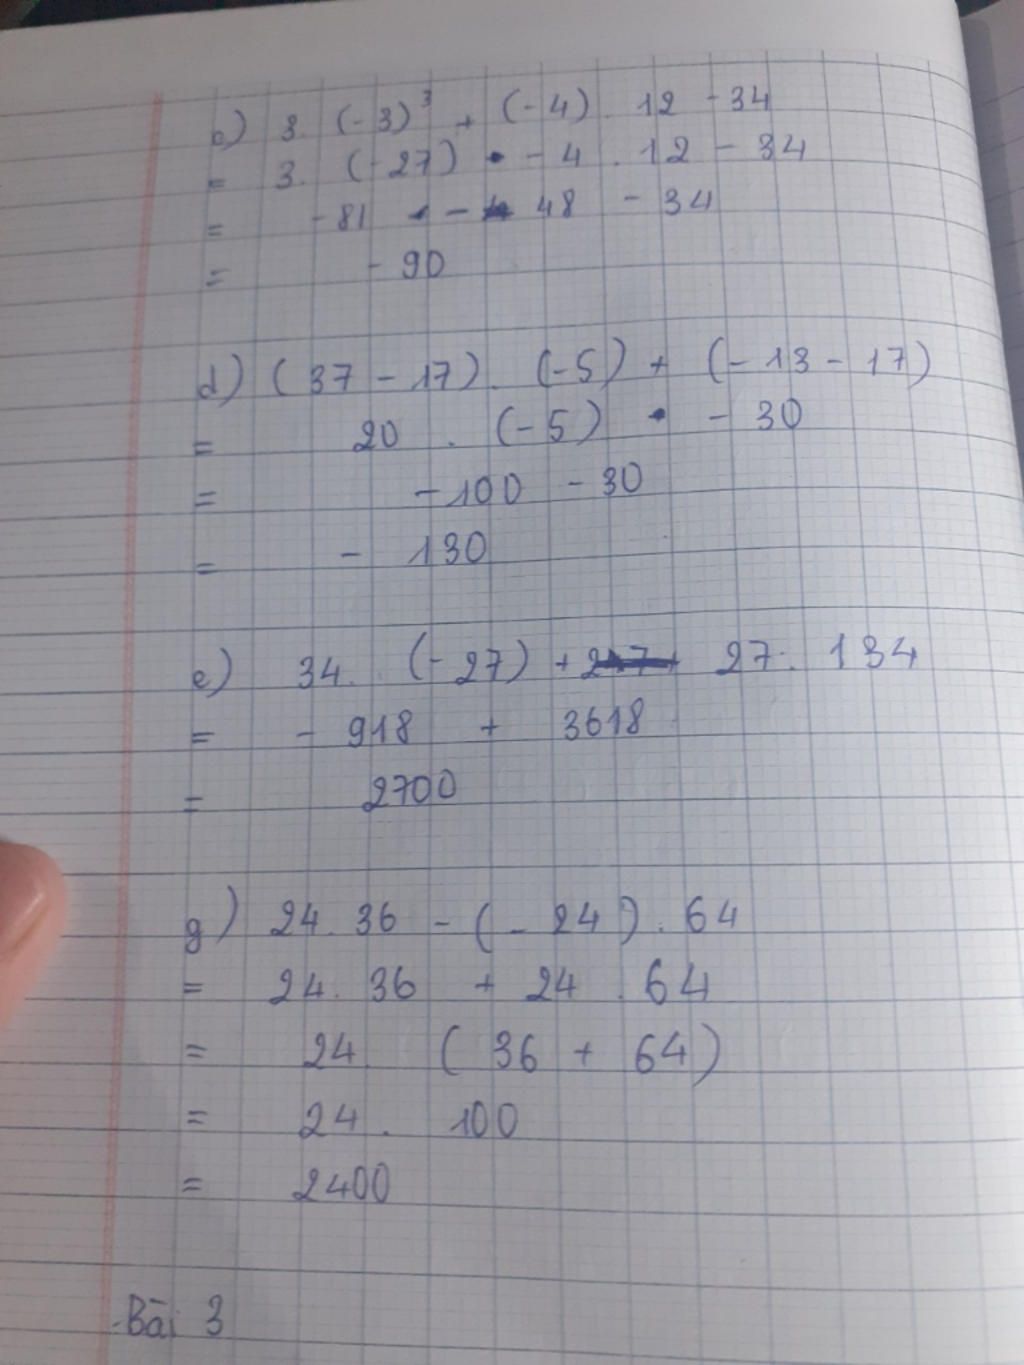 c) 3. (-3)³ + (-4) . 12 - 34
= 3. (-27) - 4 . 12 - 34
= -81 - 48 - 34
= - 90
d) (37 - 17) . (-5) + (- 13 - 17)
= 20 . (-5) - 30
= -100 - 30
= - 130
e) 34. (-27) + 27 . 134
= - 918 + 3618
= 2700
g) 24. 36 - (- 24) . 64
= 24. 36 + 24 . 64
= 24 (36 + 64)
= 24 . 100
= 2400
Bài 3